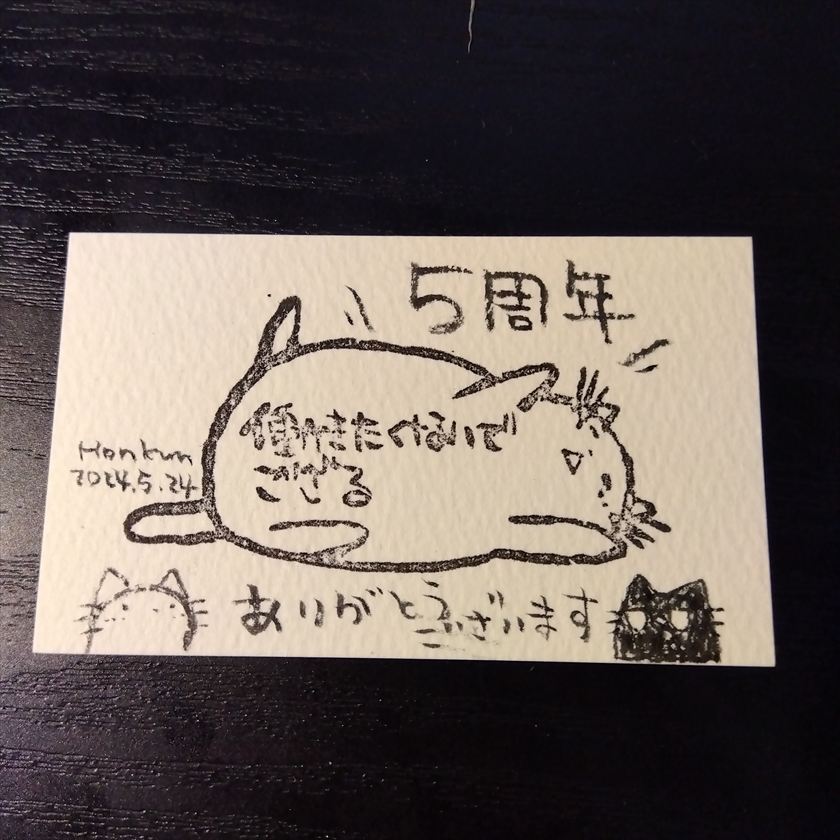 5周年
働きたくないで
ござる
Honkun
2024.5.24
ありがとうございます